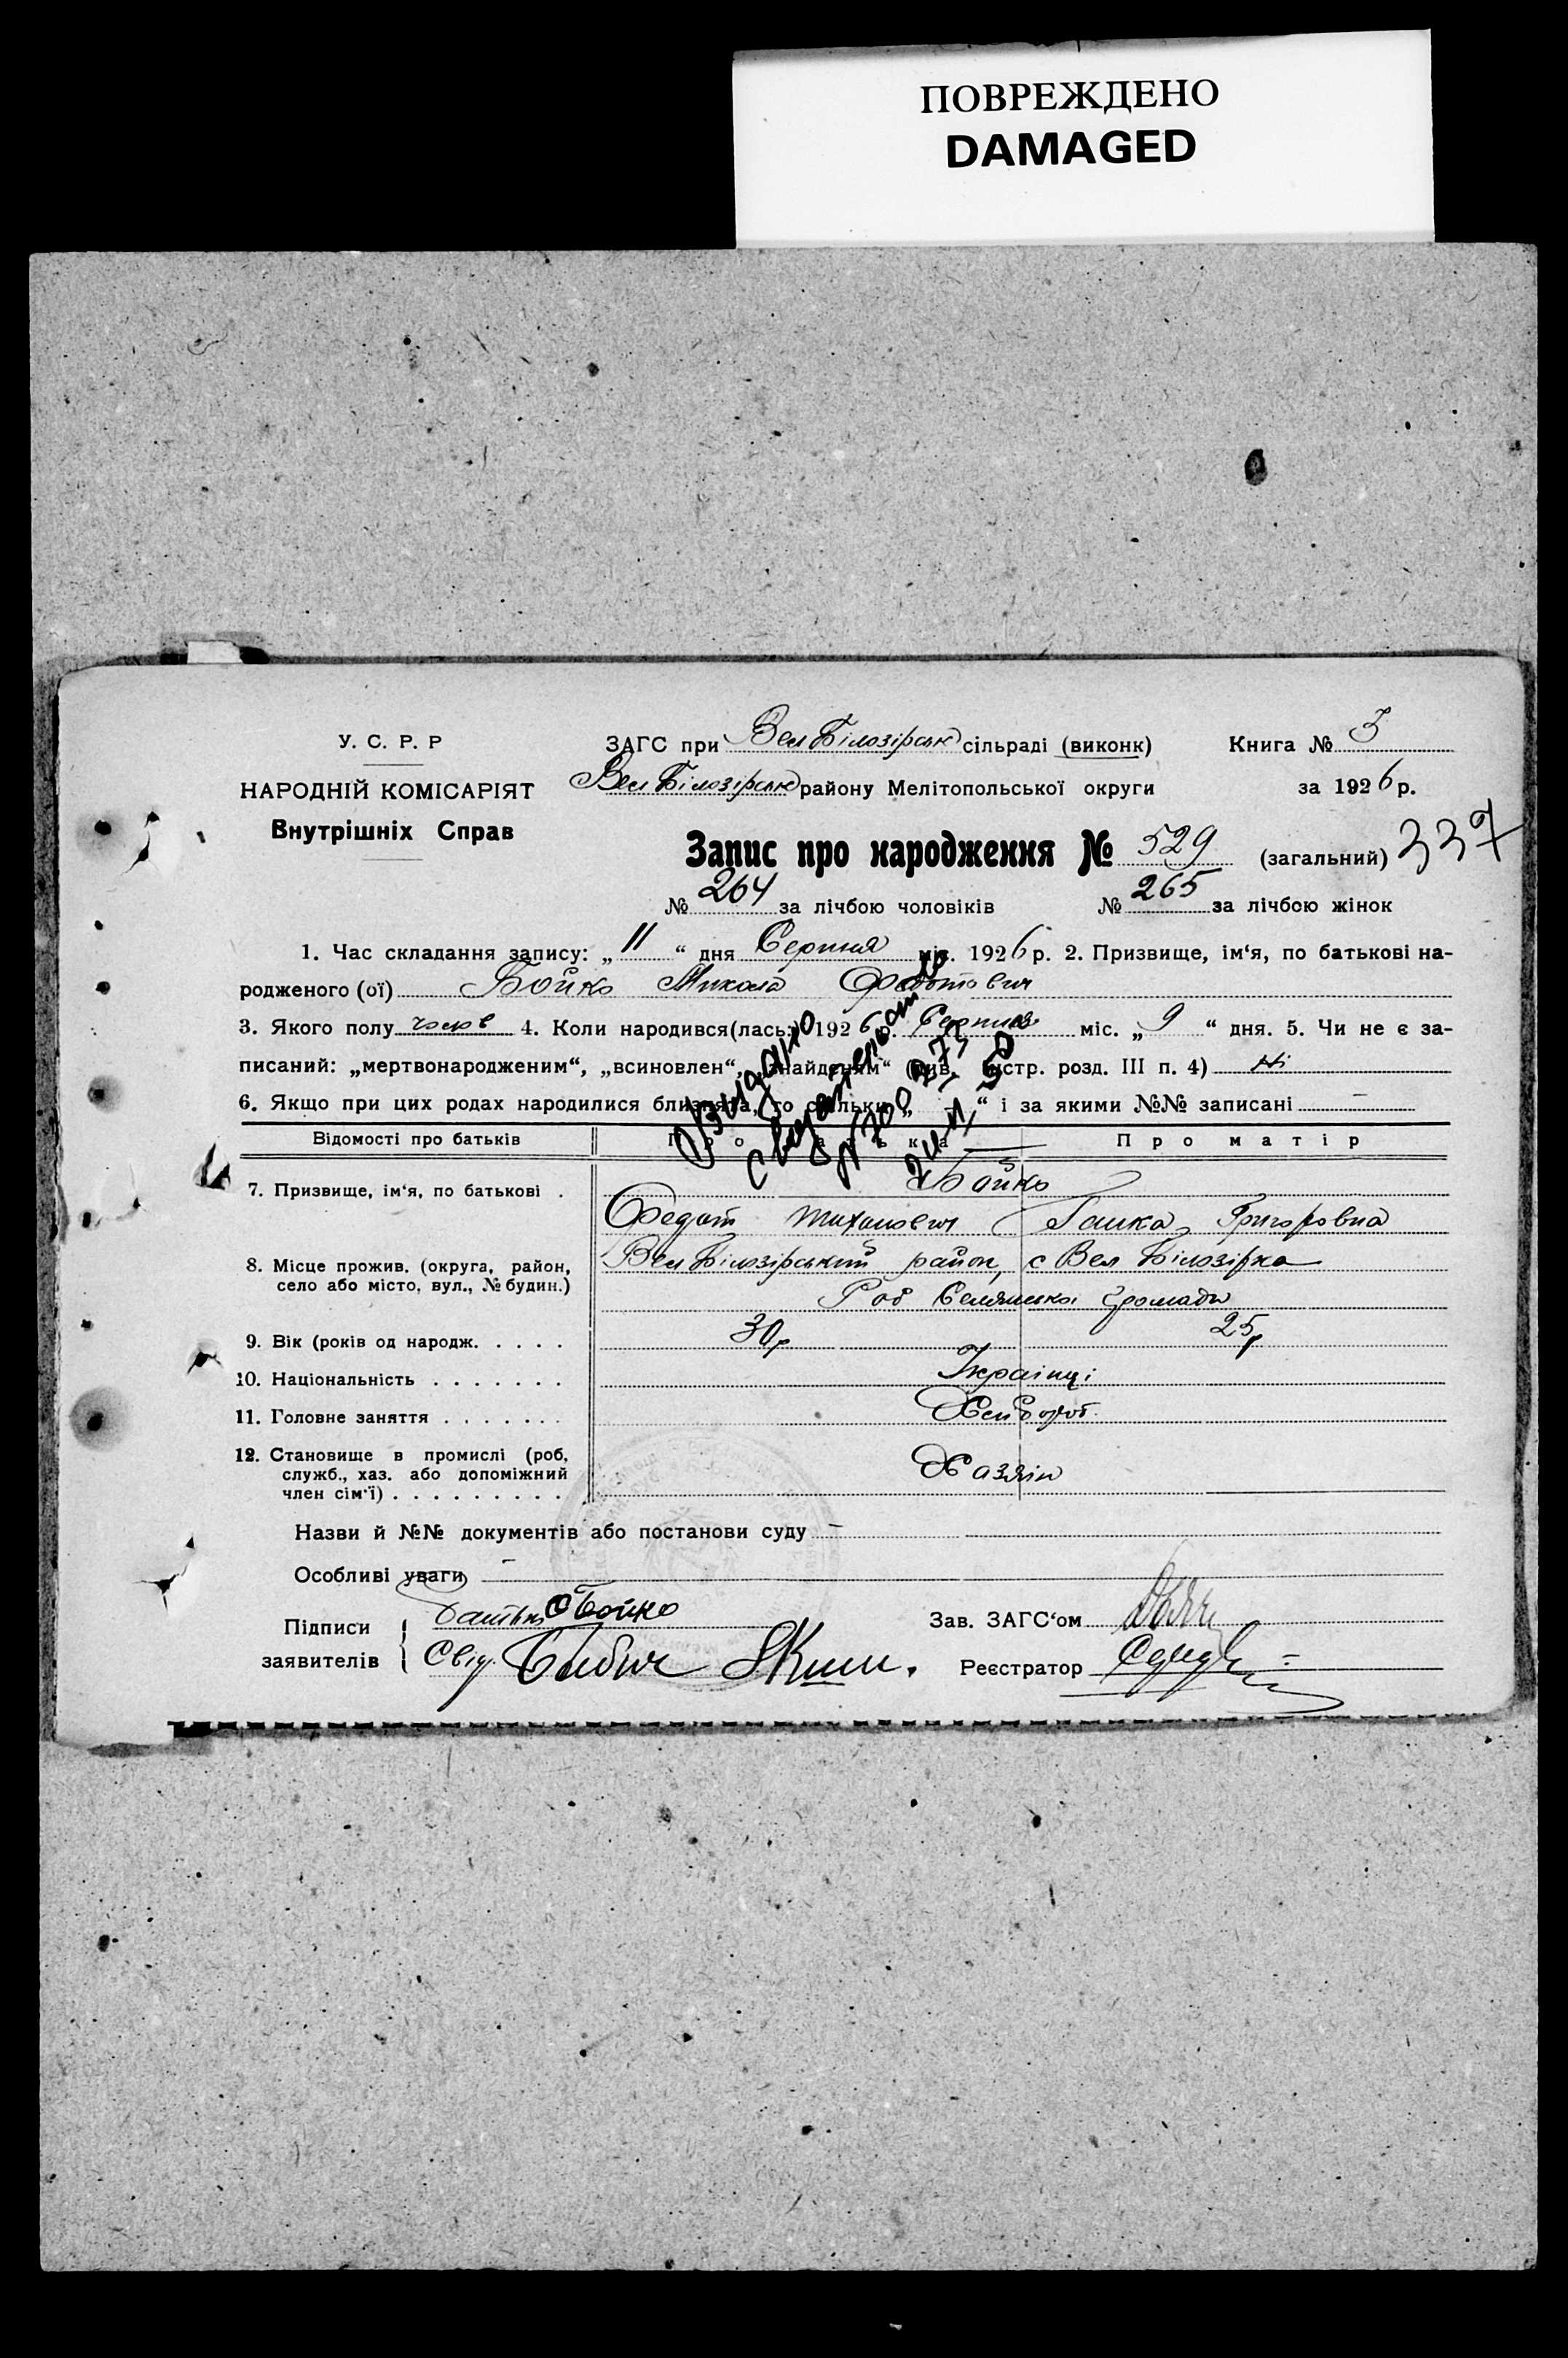 ПОВРЕЖДЕНО
DAMAGED
У. С. Р. Р
НАРОДНІЙ КОМІСАРІЯТ
Внутрішніх Справ
ЗАГС при Вел Білозірськ сільраді (виконк)
Вел Білозірськ району Мелітопольської округи
Книга № 3
за 1926 р.
Запис про народження № 529 (загальний) 337
№ 264 за лічбою чоловіків № 265 за лічбою жінок
1. Час складання запису: „11“ дня Серпня міс. 1926 р. 2. Призвище, ім‘я, по батькові на-
родженого (ої) Бойко Микола Федотович
3. Якого полу чолов 4. Коли народився(лась:) 1926 р. Серпня міс. „9“ дня. 5. Чи не є за-
писаний: „мертвонародженим“, „всиновлен“, „знайденям“ (див. інстр. розд. III п. 4) Ні
6. Якщо при цих родах народилися близнята, то скільки „ “ і за якими №№ записані —
Видано
Відомості про батьків Про батька Про матір
7. Призвище, ім‘я, по батькові . Бойко
Федот Григоровна
8. Місце прожив. (округа, район,
село або місто, вул., № будин.)
Вел Білозірський район, с Вел Білозірка
громади
9. Вік (років од народж. . . . . 30р 25р
10. Національність . . . . . . . Українці
11. Головне заняття . . . . . . .
12. Становище в промислі (роб,
служб., хаз. або допоміжний
член сім‘ї) . . . . . . . . . Хазяін
Назви й №№ документів або постанови суду —
Особливі уваги —
Підписи
заявителів
Батько Бойко
Свід.
Зав. ЗАГС‘ом
Реєстратор